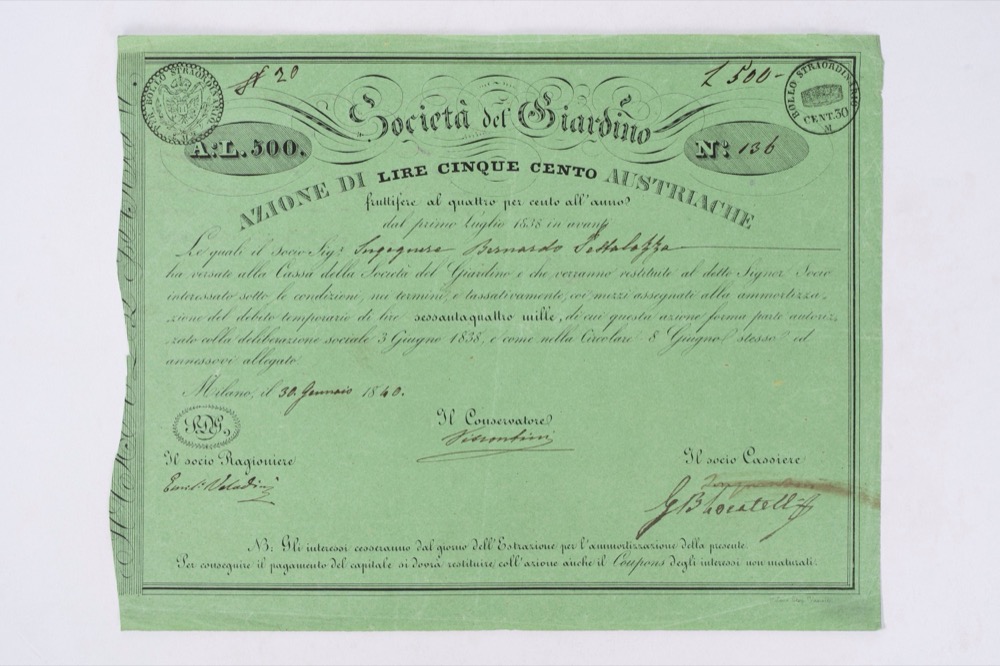 PER BOLLO STRAORDINARIO
№ 20
£ 500-
BOLLO STRAORDINARIO
CENT. 50
M
Società del Giardino
A:L.500.
N:° 136
AZIONE DI LIRE CINQUE CENTO AUSTRIACHE
fruttifere al quattro per cento all'anno
dal primo Luglio 1838 in avanti
Le quali il Socio Sig.r Ingegnere Bernardo Pestalozza
ha versate alla Cassa della Società del Giardino e che verranno restituite al detto Signor Socio
interessato sotto le condizioni, nei termini, e tassativamente, coi mezzi assegnati alla ammortizza-
zione del debito temporario di lire sessantaquattro mille, di cui questa azione forma parte autoriz-
zato colla deliberazione sociale 3 Giugno 1838, e come nella Circolare 8 Giugno stesso ed
annessovi allegato
Milano, il 30. Gennaio 1840.
SDG.
Il Conservatore
Il socio Ragioniere
Il socio Cassiere
GB Locatelli
NB: Gli interessi cesseranno dal giorno dell'Estrazione per l'ammortizzazione della presente.
Per conseguire il pagamento del capitale si dovrà restituire coll'azione anche il Coupons degli interessi non maturati.